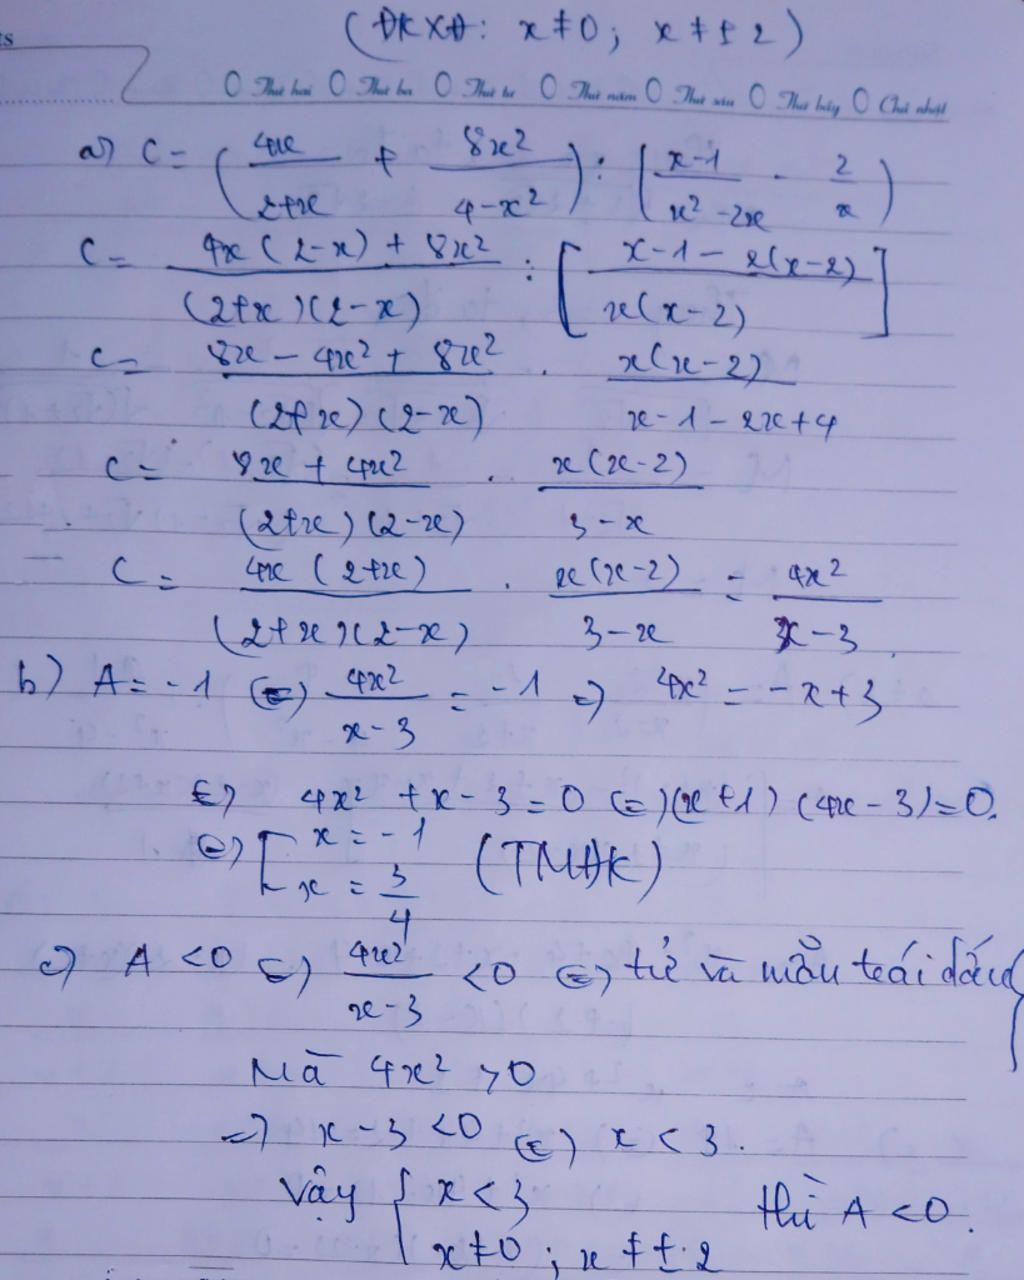 (ĐKXĐ: x ≠ 0; x ≠ ± 2)
ts
Thứ hai Thứ ba Thứ tư Thứ năm Thứ sáu Thứ bảy Chủ nhật
a) C = (4x/(2+x) + 8x²/(4-x²)) : ((x-1)/(x²-2x) - 2/x)
C = (4x(2-x) + 8x²)/((2+x)(2-x)) : [(x-1-2(x-2))/(x(x-2))]
C = (8x - 4x² + 8x²)/((2+x)(2-x)) . x(x-2)/(x-1-2x+4)
C = (8x + 4x²)/((2+x)(2-x)) . x(x-2)/(3-x)
C = 4x(2+x)/((2+x)(2-x)) . x(x-2)/(3-x) = 4x²/(x-3)
b) A = -1 (=) 4x²/(x-3) = -1 =) 4x² = -x+3
(=) 4x² + x - 3 = 0 (=) (x+1)(4x-3) = 0.
(=) [x = -1
x = 3/4 (TMĐK)
c) A < 0 (=) 4x²/(x-3) < 0 (=) tử và mẫu trái dấu
Mà 4x² > 0
=) x - 3 < 0 (=) x < 3.
Vậy { x < 3
x ≠ 0; x ≠ ± 2 thì A < 0.